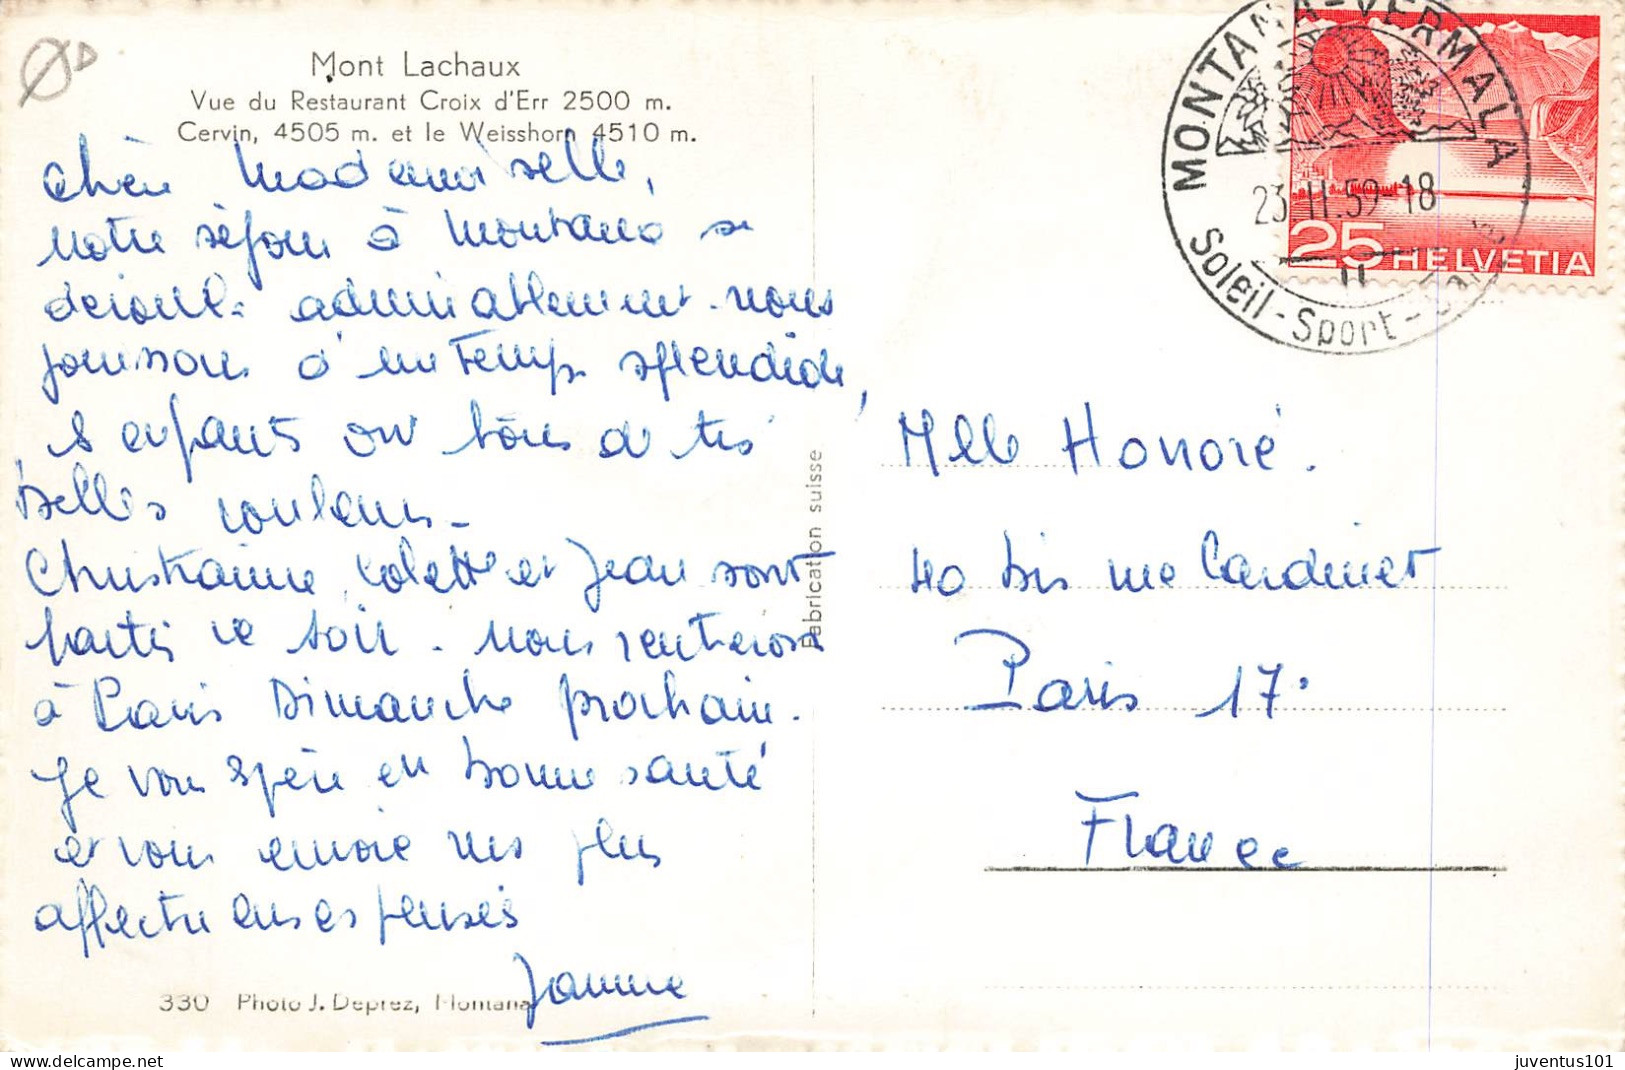 Mont Lachaux
Vue du Restaurant Croix d'Err 2500 m.
Cervin, 4505 m. et le Weisshorn 4510 m.
Chère Mademoiselle,
notre séjour à Montana se
déroule admirablement. nous
jouissons d'un temps splendide,
les enfants ont tous de très
belles couleurs_
Christianne, Colette et Jean sont
partis ce soir. nous rentrerons
à Paris Dimanche prochain.
Je vous espère en bonne santé
et vous envoie mes plus
affectueuses pensées
330 Photo J. Deprez, Montana
Fabrication suisse
MONTANA-VERMALA
23.II.59-18
II
Soleil-Sport-
25 HELVETIA
Mlle Honoré.
40 bis rue Cardinet
Paris 17.
France
juventus101